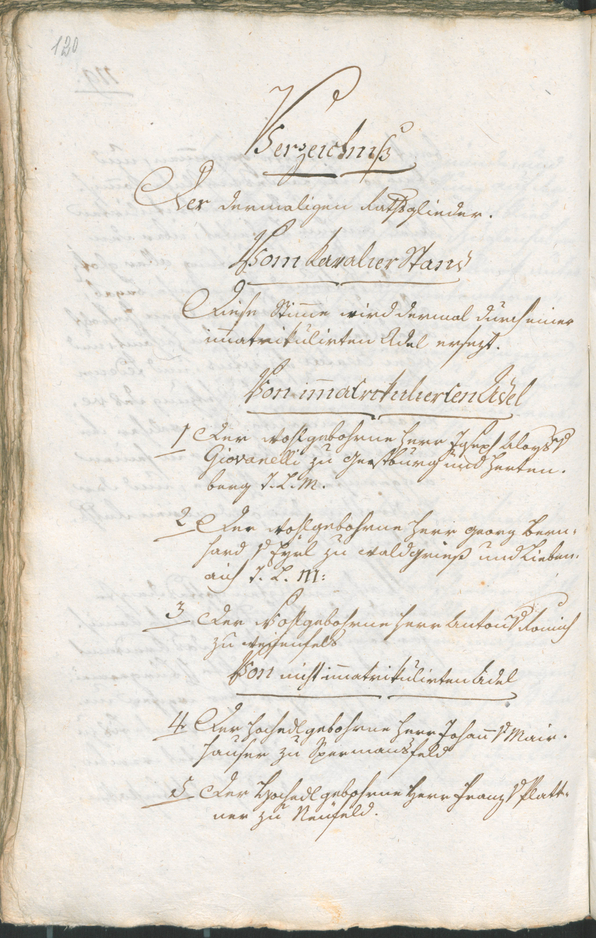 120
Verzeichniß
Der dermaligen Rathsglieder.
Vom Kavalier Stand
Diese Stimme wird dermal durch einen
immatrikulirten Adel ersezt.
Von immatrikulierten Adel
1 Der wohlgebohrne Herr Joseph Aloys v
Giovanelli zu Gerstburg und Herten-
berg T. L. M.
2 Der wohlgebohrne Herr Georg Bern-
hard v Eyrl zu Waldgrieß und Lieben-
aich T. L. M:
3 Der Wohlgebohrne Herr Anton v
zu Weissenfels
Von nicht immatrikulirten Adel
4 Der hochedlgebohrne Herr Johann v Mair-
hauser zu Spermansfeld
5 Der Hochedlgebohrne Herr Franz v Platt-
ner zu Neufeld.